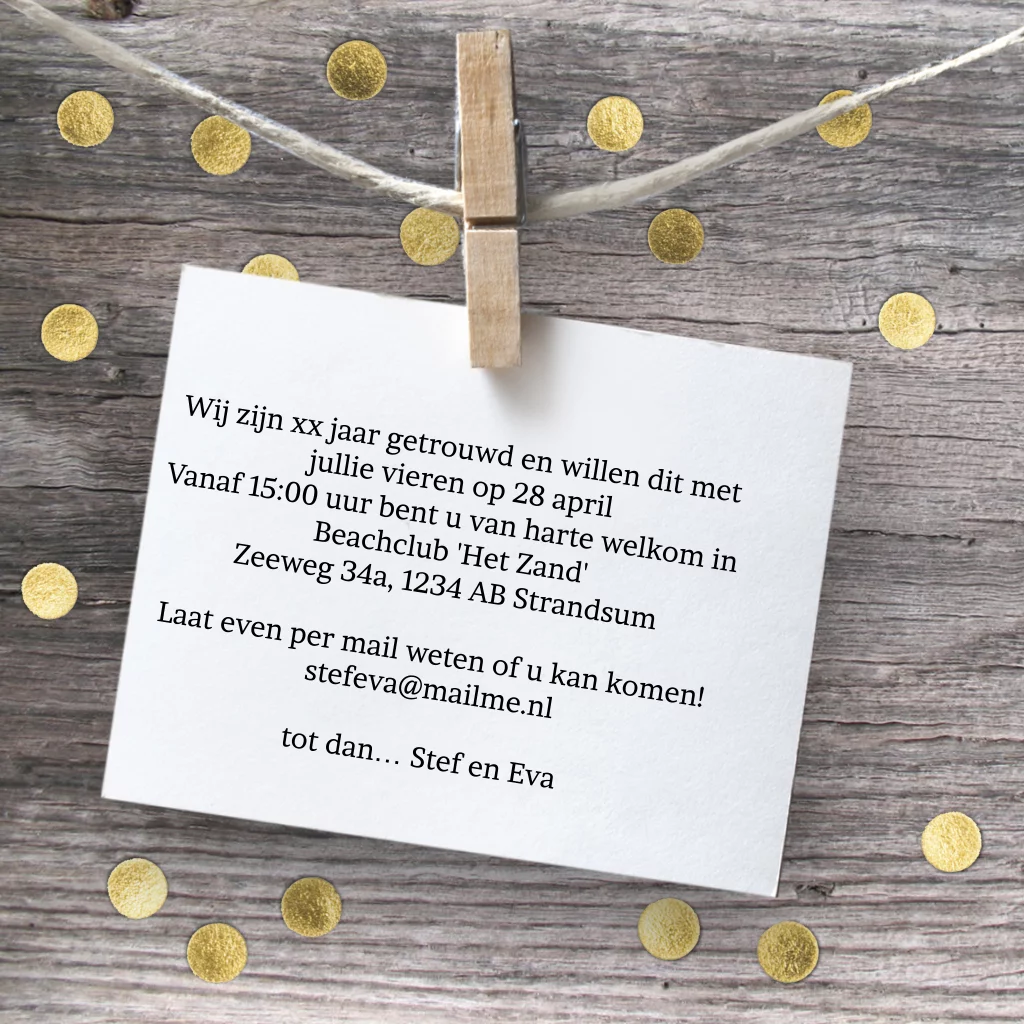 Wij zijn xx jaar getrouwd en willen dit met
jullie vieren op 28 april
Vanaf 15:00 uur bent u van harte welkom in
Beachclub 'Het Zand'
Zeeweg 34a, 1234 AB Strandsum
Laat even per mail weten of u kan komen!
stefeva@mailme.nl
tot dan… Stef en Eva